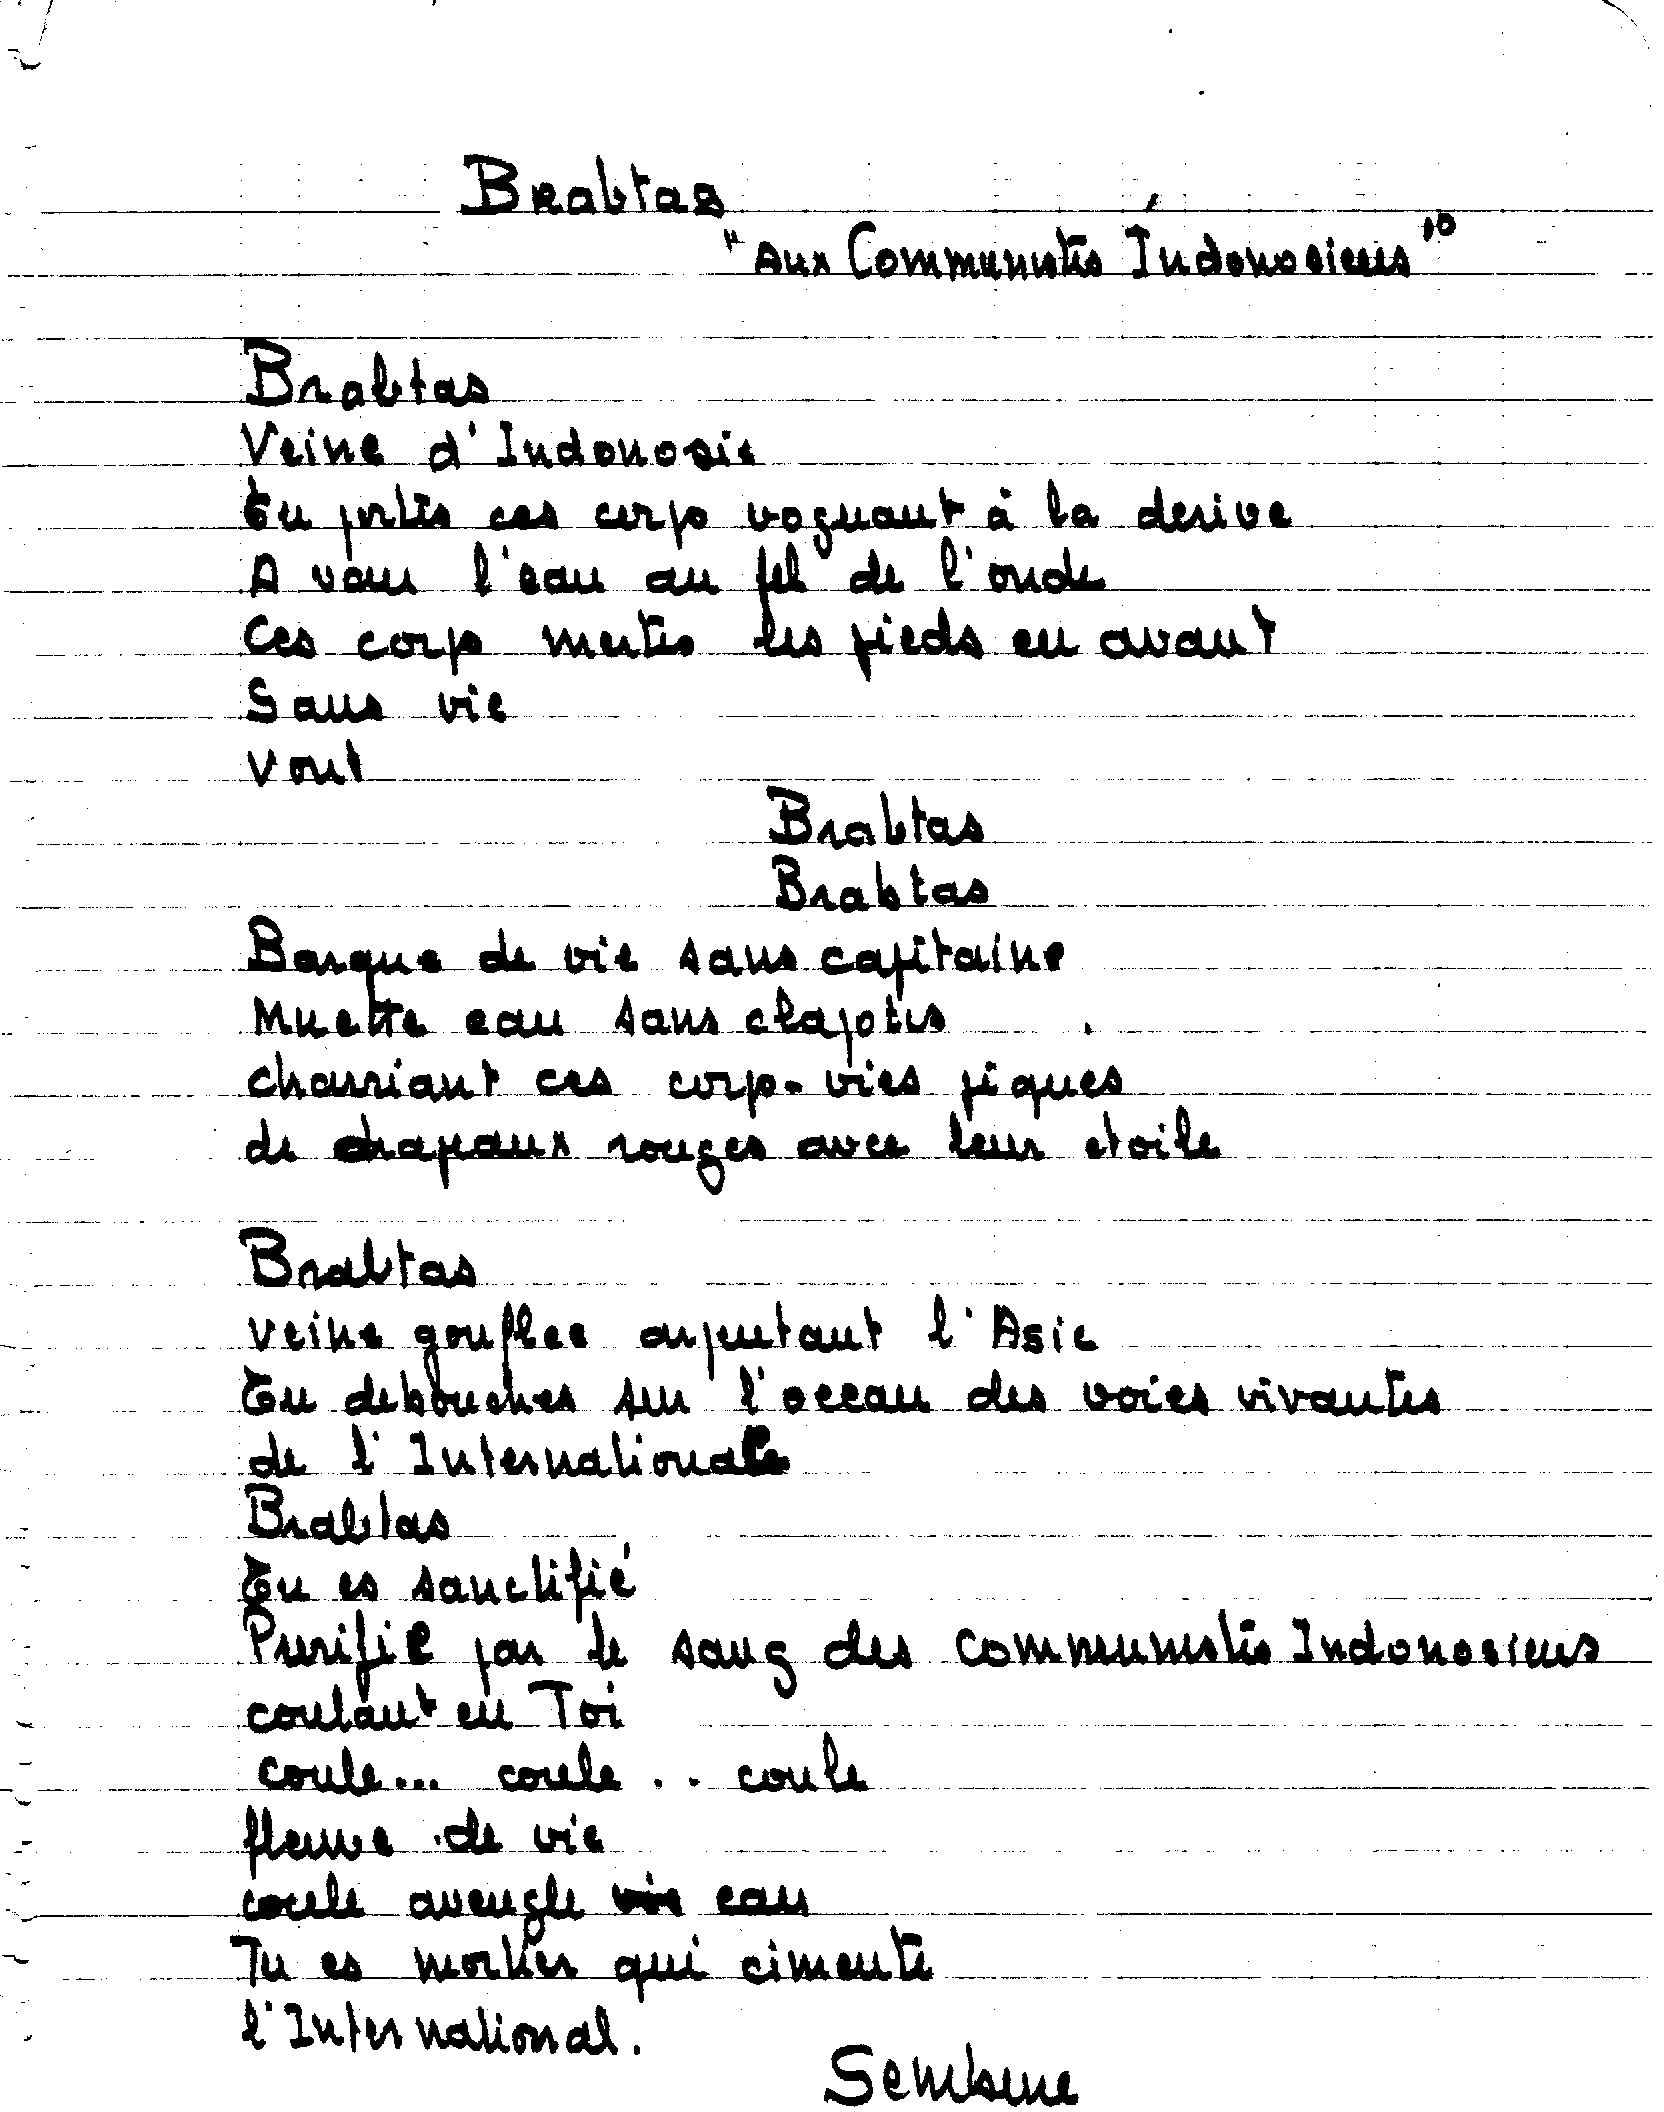 Brabtas
"Aux Communistes Indonosiens"
Brabtas
Veine d'Indonosie
Tu portes ces corps voguant à la derive
A vau l'eau au fel de l'onde
Ces corps mertes les pieds en avant
Sans vie
Vont
Brabtas
Brabtas
Barque de vie sans capitaine
Muette eau sans clapotis
charriant ces corps-vies piques
de drapeaux rouges avec leur etoile
Brabtas
veine gonflee arpentant l'Asie
Tu debouches sur l'ocean des voies vivantes
de l'Internationale
Brabtas
Tu es sanctifié
Purifie par le sang des communistes Indonosiens
coulant en Toi
coule... coule .. coule
fleuve de vie
coule aveugle eau
Tu es mortier qui cimente
l'International.
Sembene